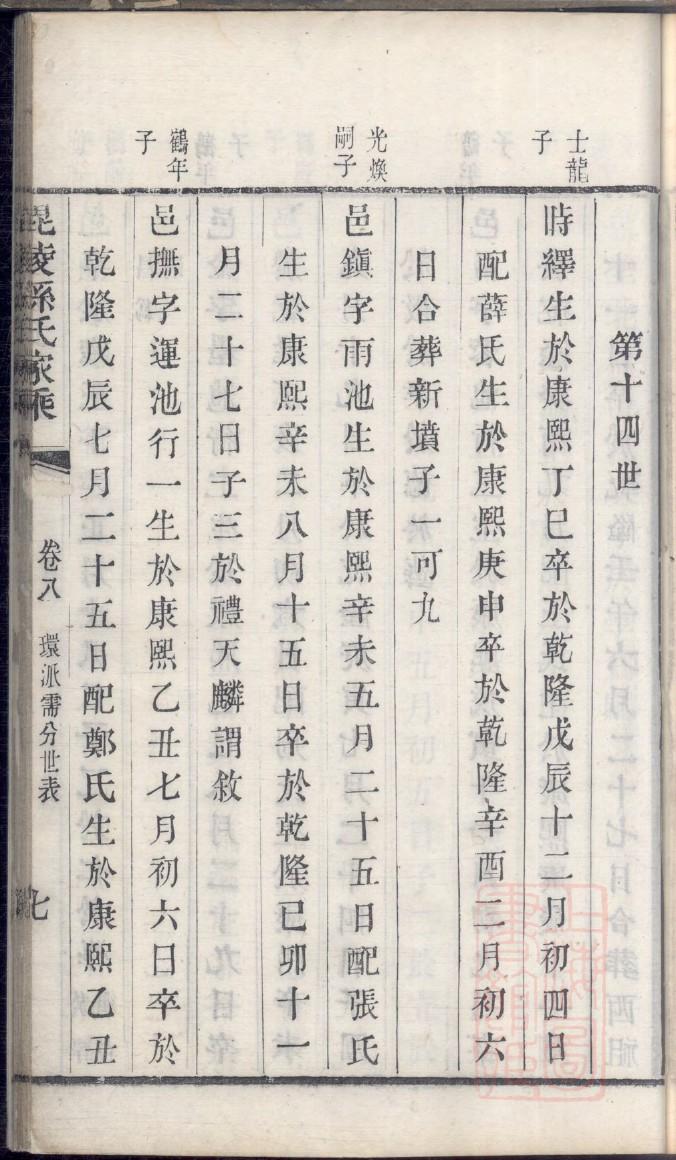 第十四世
士龍
子
時繹生於康熙丁巳卒於乾隆戊辰十二月初四日
配薛氏生於康熙庚申卒於乾隆辛酉二月初六
日合葬新墳子一可九
光煥
嗣子
邑鎮字雨池生於康熙辛未五月二十五日配張氏
生於康熙辛未八月十五日卒於乾隆己卯十一
月二十七日子三於禮天麟謂敘
鶴年
子
邑撫字運池行一生於康熙乙丑七月初六日卒於
乾隆戊辰七月二十五日配鄭氏生於康熙乙丑
毘陵孫氏家乘
卷八
環派需分世表
七